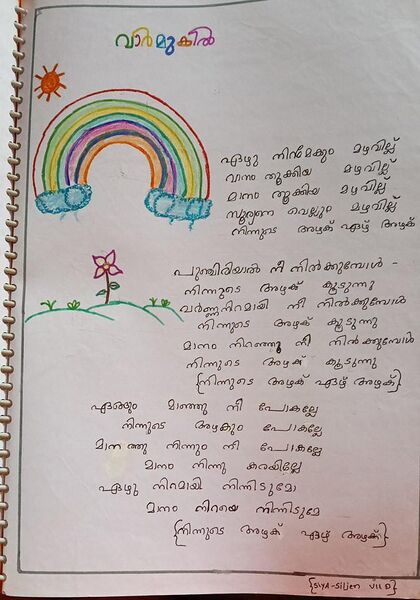 വാർമുകിൽ
ഏഴു നിറമേകും മഴവില്ല്
വാനം തൂക്കിയ മഴവില്ല്
മാനം തൂക്കിയ മഴവില്ല്
സൂര്യനെ വെല്ലും മഴവില്ല്
നിന്നുടെ അഴക് ഏഴ് അഴക്
പുഞ്ചിരിയാൽ നീ നിൽക്കുമ്പോൾ -
നിന്നുടെ അഴക് കൂടുന്നു
വർണ്ണനിറമായി നീ നിൽക്കുമ്പോൾ
നിന്നുടെ അഴക് കൂടുന്നു
മാനം നിറഞ്ഞു നീ നിൽക്കുമ്പോൾ
നിന്നുടെ അഴക് കൂടുന്നു
{നിന്നുടെ അഴക് ഏഴ് അഴക്}
എങ്ങും മാഞ്ഞു നീ പോകല്ലേ
നിന്നുടെ അഴകും പോകല്ലേ
മാനത്തു നിന്നും നീ പോകല്ലേ
മാനം നിന്നു കരയില്ലേ
ഏഴു നിറമായി നിന്നിടുമോ
മാനം നിറയെ നിന്നിടുമേ
{നിന്നുടെ അഴക് ഏഴ് അഴക്}
{SIYA-Siljen VII D}